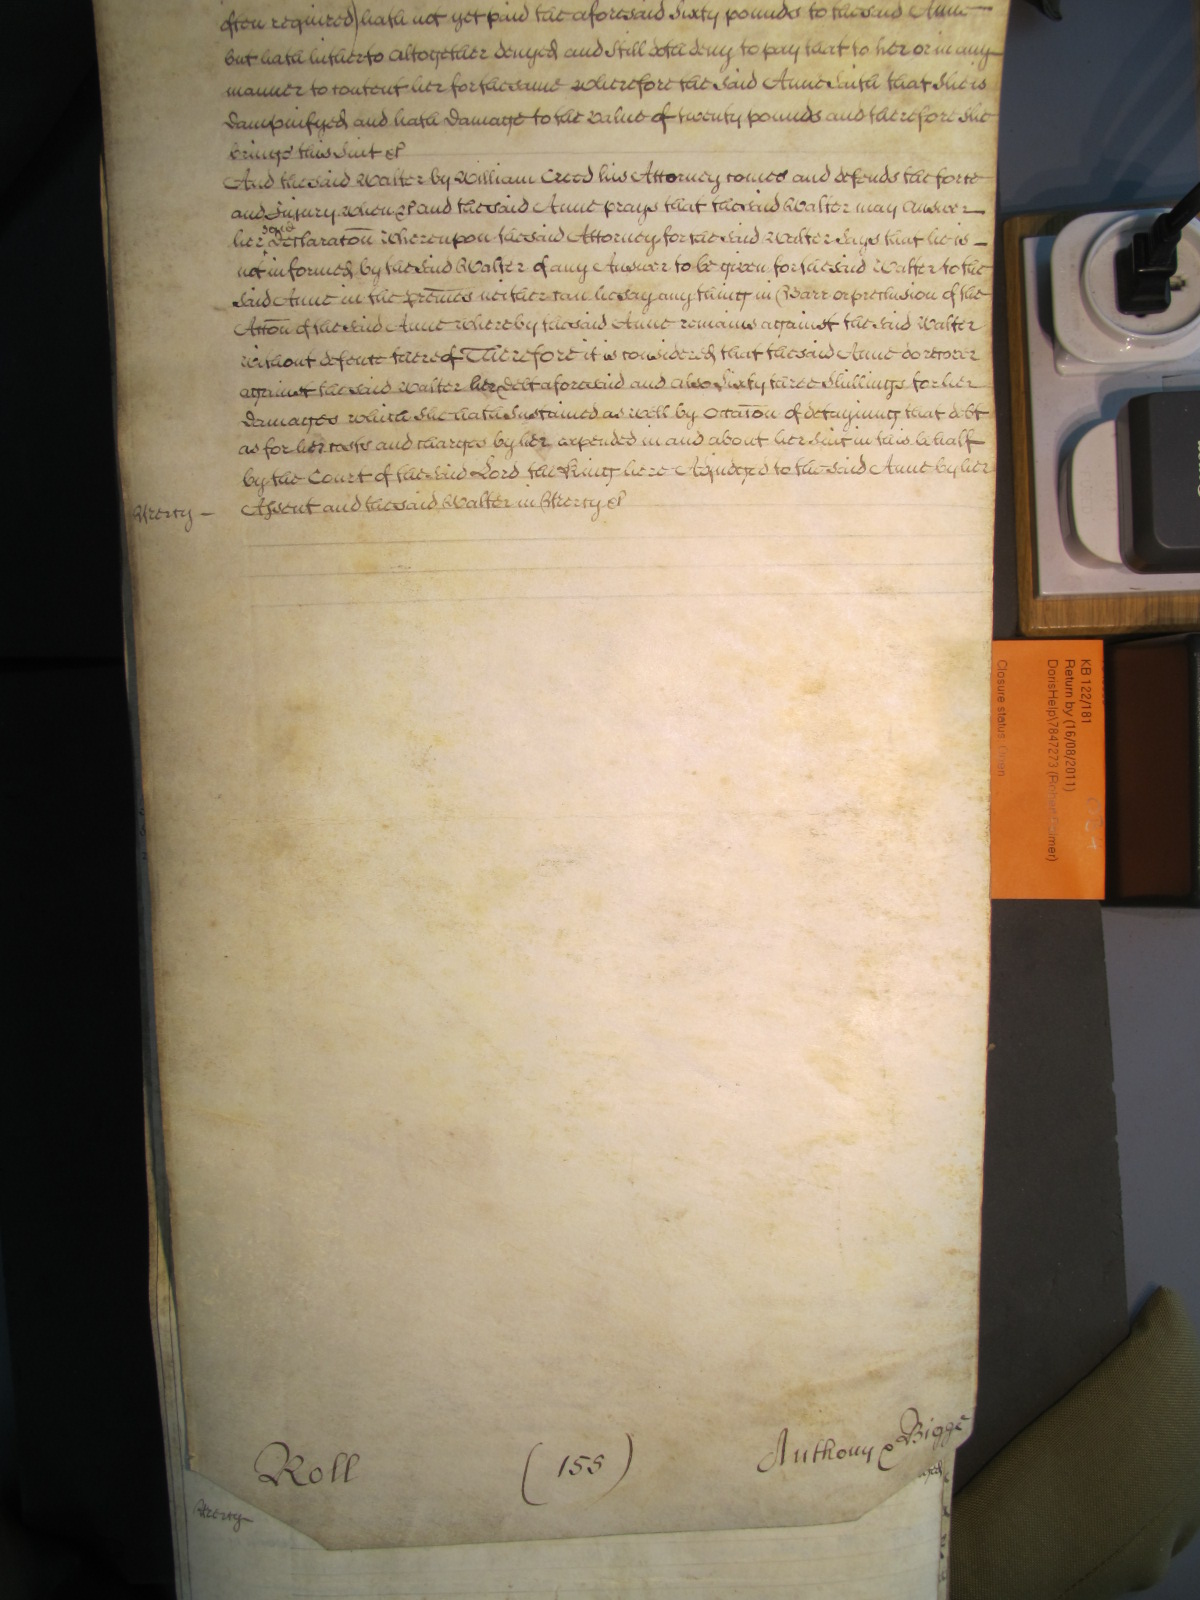 often required) hath not yet paid the aforesaid Sixty pounds to the said Anne
but hath hitherto altogether denyed and still doth deny to pay that to her or in any
manner to content her for the same Wherefore the said Anne saith that She is
Dampnifyed and hath Damage to the Value of twenty pounds and therefore She
brings this Suit &c
And the said Walter by William Creed his Attorney comes and defends the force
and Injury when &c and the said Anne prays that the said Walter may Answer
her said Declaraton Whereupon the said Attorney for the said Walter Says that he is
not informed by the said Walter of any Answer to be given for the said Walter to the
said Anne in the Premes neither can he say any thing in Barr or preclusion of the
Acton of the said Anne whereby the said Anne remains against the said Walter
without defence thereof Therefore it is considered that the said Anne do recover
against the said Walter her Debt aforesaid and also Sixty three Shillings for her
Damages which She hath Sustained as Well by Occaton of detayning that debt
as for her costs and charges by her expended in and about her Suit in this behalf
by the Court of the said Lord the King here Adjudged to the said Anne by her
Assent and the said Walter in Mercy &c
Mercy
Roll (155) Anthony & Bigge
Mercy
KB 122/181
Return by (16/08/2011)
DorisHelp\7847273 (Robert Palmer)
Closure status: Open